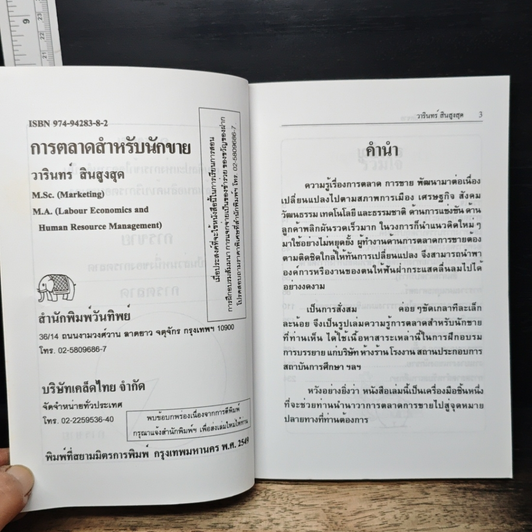 ISBN 974-94283-8-2
การตลาดสำหรับนักขาย
วารินทร์ สินสูงสุด
M.Sc. (Marketing)
M.A. (Labour Economics and
Human Resource Management)
เมื่อประสงค์จะใช้หนังสือนี้ในการเรียนการสอน
การฝึกอบรมสัมมนา การแจกจ่ายเป็นของชำร่วย ของขวัญของฝาก
โปรดสอบถามราคาพิเศษที่สำนักพิมพ์ฯ โทร. 02-5809686-7
สำนักพิมพ์วันทิพย์
36/14 ถนนงามวงศ์วาน ลาดยาว จตุจักร กรุงเทพฯ 10900
โทร. 02-5809686-7
บริษัทเคล็ดไทย จำกัด
จัดจำหน่ายทั่วประเทศ
โทร. 02-2259536-40
พบข้อบกพร่องเนื่องจากการตีพิมพ์
กรุณาแจ้งสำนักพิมพ์ฯ เพื่อส่งเล่มใหม่ให้ท่าน
พิมพ์ที่สยามมิตรการพิมพ์ กรุงเทพมหานคร พ.ศ. 2549
วารินทร์ สินสูงสุด 3
คำนำ
ความรู้เรื่องการตลาด การขาย พัฒนามาต่อเนื่อง
เปลี่ยนแปลงไปตามสภาพการเมือง เศรษฐกิจ สังคม
วัฒนธรรม เทคโนโลยี และธรรมชาติ ด้านการแข่งขัน ด้าน
ลูกค้าพลิกผันรวดเร็วมาก ในวงการก็นำแนวคิดใหม่ ๆ
มาใช้อย่างไม่หยุดยั้ง ผู้ทำงานด้านการตลาดการขายต้อง
ตามติดชิดใกล้ให้ทันการเปลี่ยนแปลง จึงสามารถนำพา
องค์การหรืองานของตนให้ฟันฝ่ากระแสคลื่นลมไปได้
อย่างงดงาม
เป็นการสั่งสม ค่อย ๆ ขัดเกลาทีละเล็ก
ละน้อย จึงเป็นรูปเล่มความรู้การตลาดสำหรับนักขาย
ที่ท่านเห็น ได้ใช้เนื้อหาสาระเหล่านี้ในการฝึกอบรม
การบรรยาย แก่บริษัท ห้างร้าน โรงงาน สถานประกอบการ
สถาบันการศึกษา ฯลฯ
หวังอย่างยิ่งว่า หนังสือเล่มนี้เป็นเครื่องมือชิ้นหนึ่ง
ที่จะช่วยท่านนำนาวาการตลาดการขายไปสู่จุดหมาย
ปลายทางที่ท่านต้องการ